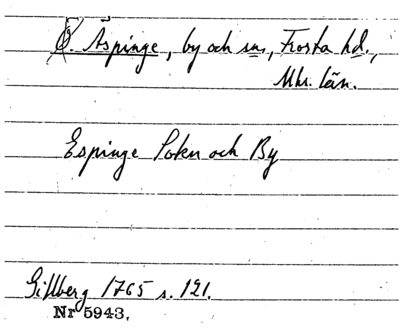 Ö. Äspinge, by och sn, Frosta hd.,
Mhs. län.
Espinge Sokn och By
Gillberg 1765 s. 121.
Nr 5943.